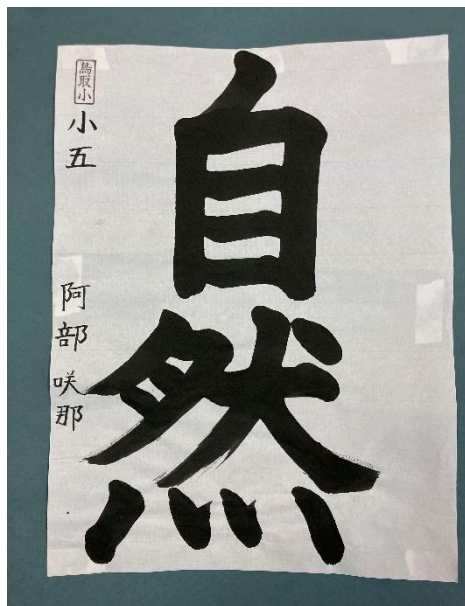 自然
鳥取小
小五
阿部咲那